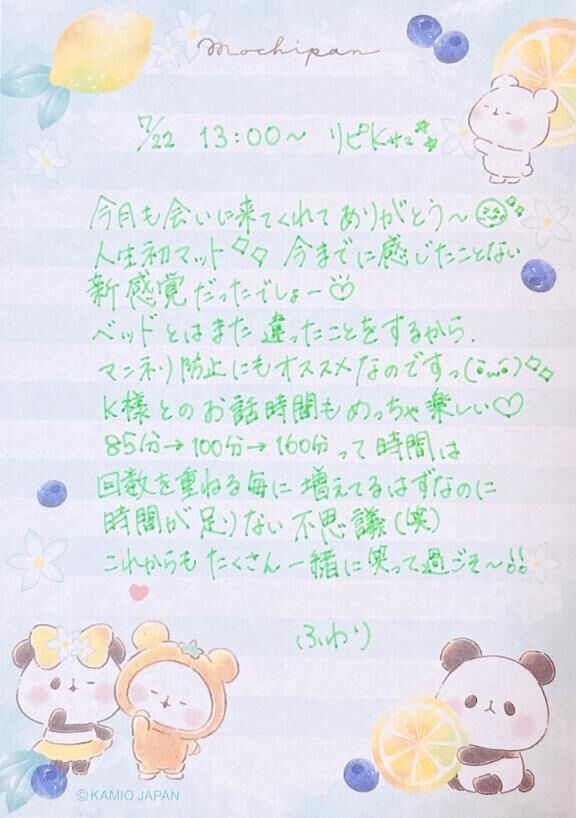 mochipan
7/22 13:00～ リピKサマ
今日も会いに来てくれてありがとう～
人生初マット 今までに感じたことない
新感覚だったでしょー♡
ベッドとはまた違ったことをするから、
マンネリ防止にもオススメなのですっ(¨̮)
K様とのお話時間もめっちゃ楽しい♡
85分→100分→160分って時間は
回数を重ねる毎に増えてるはずなのに
時間が足りない不思議(笑)
これからもたくさん一緒に笑って過ごそ～!!
ふわり
© KAMIO JAPAN